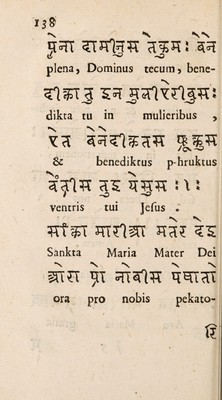 138
प्रेना दामीनुस तेकुमः बेने
plena, Dominus tecum, bene-
दीका तु इन मुलीएरीबुस :
dikta tu in mulieribus ,
एत बेनेदीकतस फ्रूकुस
& benediktus p-hruktus
वेंत्रीस तुइ येसुस : । :
ventris tui Jesus .
सांका मारीआ मतेर देइ
Sankta Maria Mater Dei
ओरा प्रो नोबीस पेघातो
ora pro nobis pekato-
रि